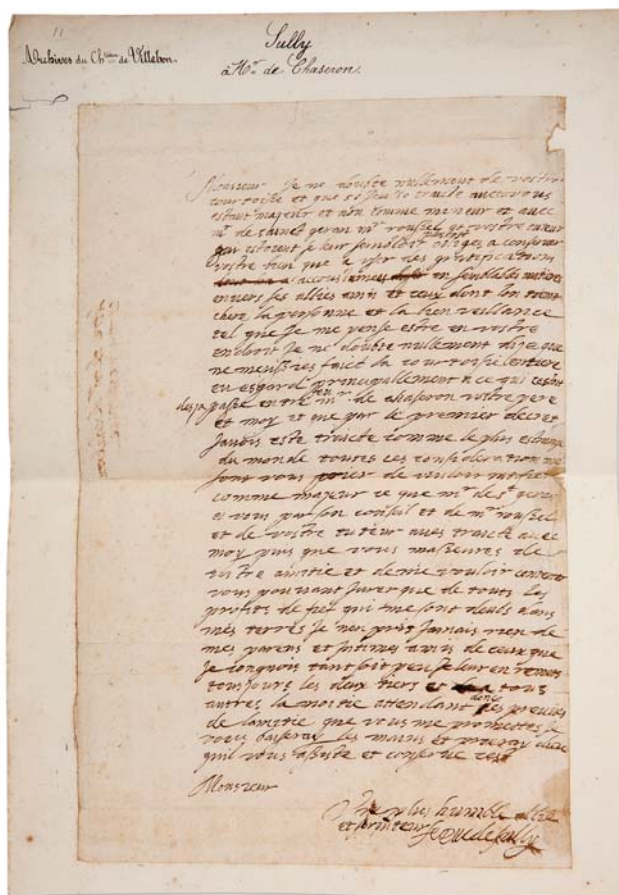 11
Archives du Ch.teau de Villebon.
Sully
à Mr. de Chaseron.
Monsieur Je ne doubte nullement de vostre
courtoisie et que si Jeusse traicte avec vous
estant majeur et non comme mineur et avec
mr de sainct geran mr roussel et vostre tuteur
qui estoient se leur sembloit plustost obliges a conserver
vostre bien que a user des gratifications
accoustumees en semblables matieres
envers ses allies amis et ceux dont lon tient
chere la personne et la bien veillance
tel que Je me pense estre en vostre
endroit Je ne doubte nullement dije que
ne meussies faict la courtoisie entiere
eu esgard principallement a ce qui cestoit
desja passe entre feu mr de chaseron vostre pere
et moy et que par le premier decret
Javois este traicte comme le plus estrange
du monde toutes ces consideration me
font vous prier de vouloir ratifier
comme majeur ce que mr de st geran
et vous par son conseil et de mr roussel
et de vostre tuteur aves traicte avec
moy puis que vous masseures de
vostre amitie et de me vouloir
vous pouvant jurer que de touts les
profits de fief qui me sont deubs dans
mes terres Je nen pris Jamais rien de
mes parens et Intimes amis de ceux que
Je congnois tant soit peu Je leur en remets
tousjours les deux tiers et tous
autres la moitie attendant donc les preuves
de lamitie que vous me promettes Je
vous baiseray les mains et prieray dieu
quil vous assiste et conserve cest
Monsieur
Vostre plus humble allie
et serviteur le Duc de Sully